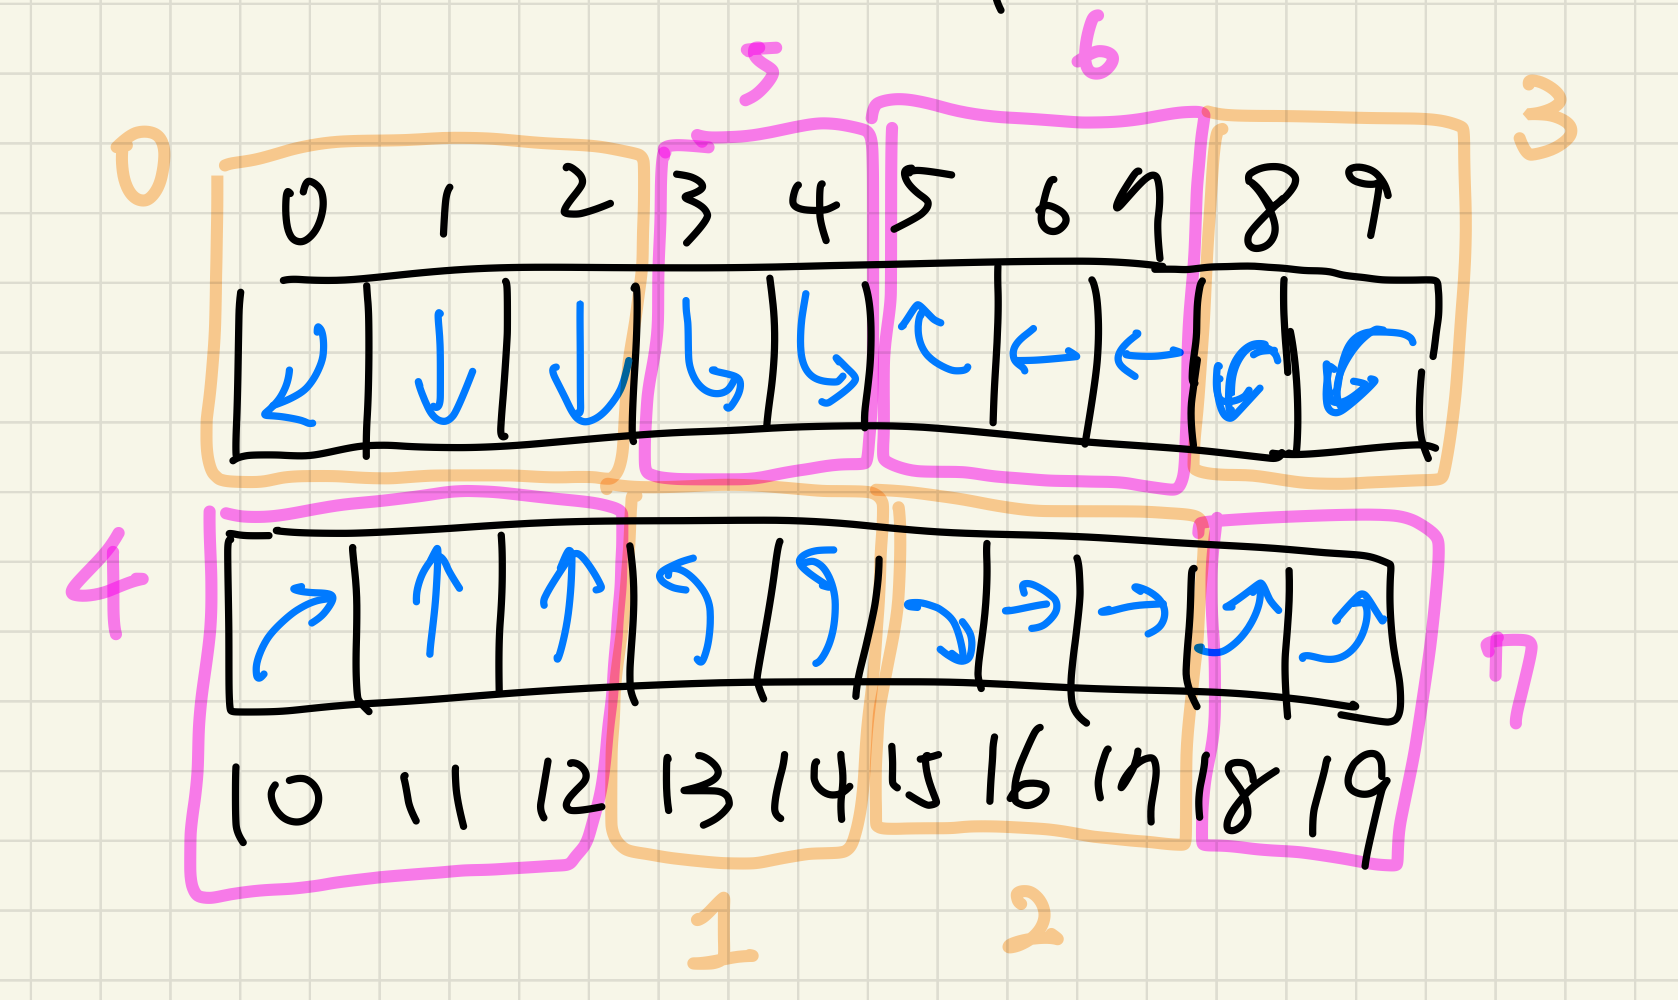 5 6
0 3
0 1 2 3 4 5 6 7 8 9
4 7
10 11 12 13 14 15 16 17 18 19
1 2